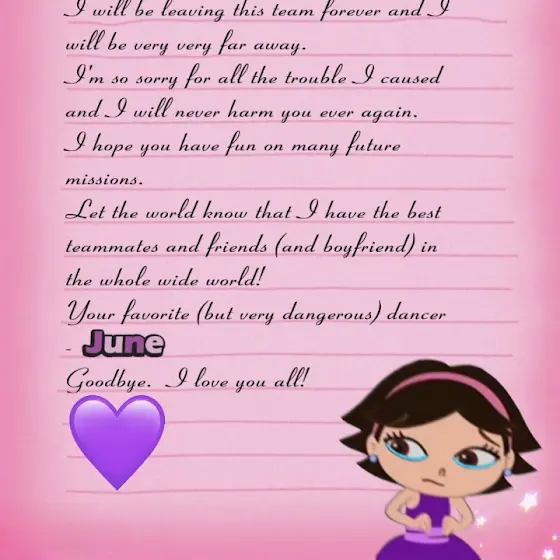 I will be leaving this team forever and I
will be very very far away.
I'm so sorry for all the trouble I caused
and I will never harm you ever again.
I hope you have fun on many future
missions.
Let the world know that I have the best
teammates and friends (and boyfriend) in
the whole wide world!
Your favorite (but very dangerous) dancer
- June
Goodbye. I love you all!